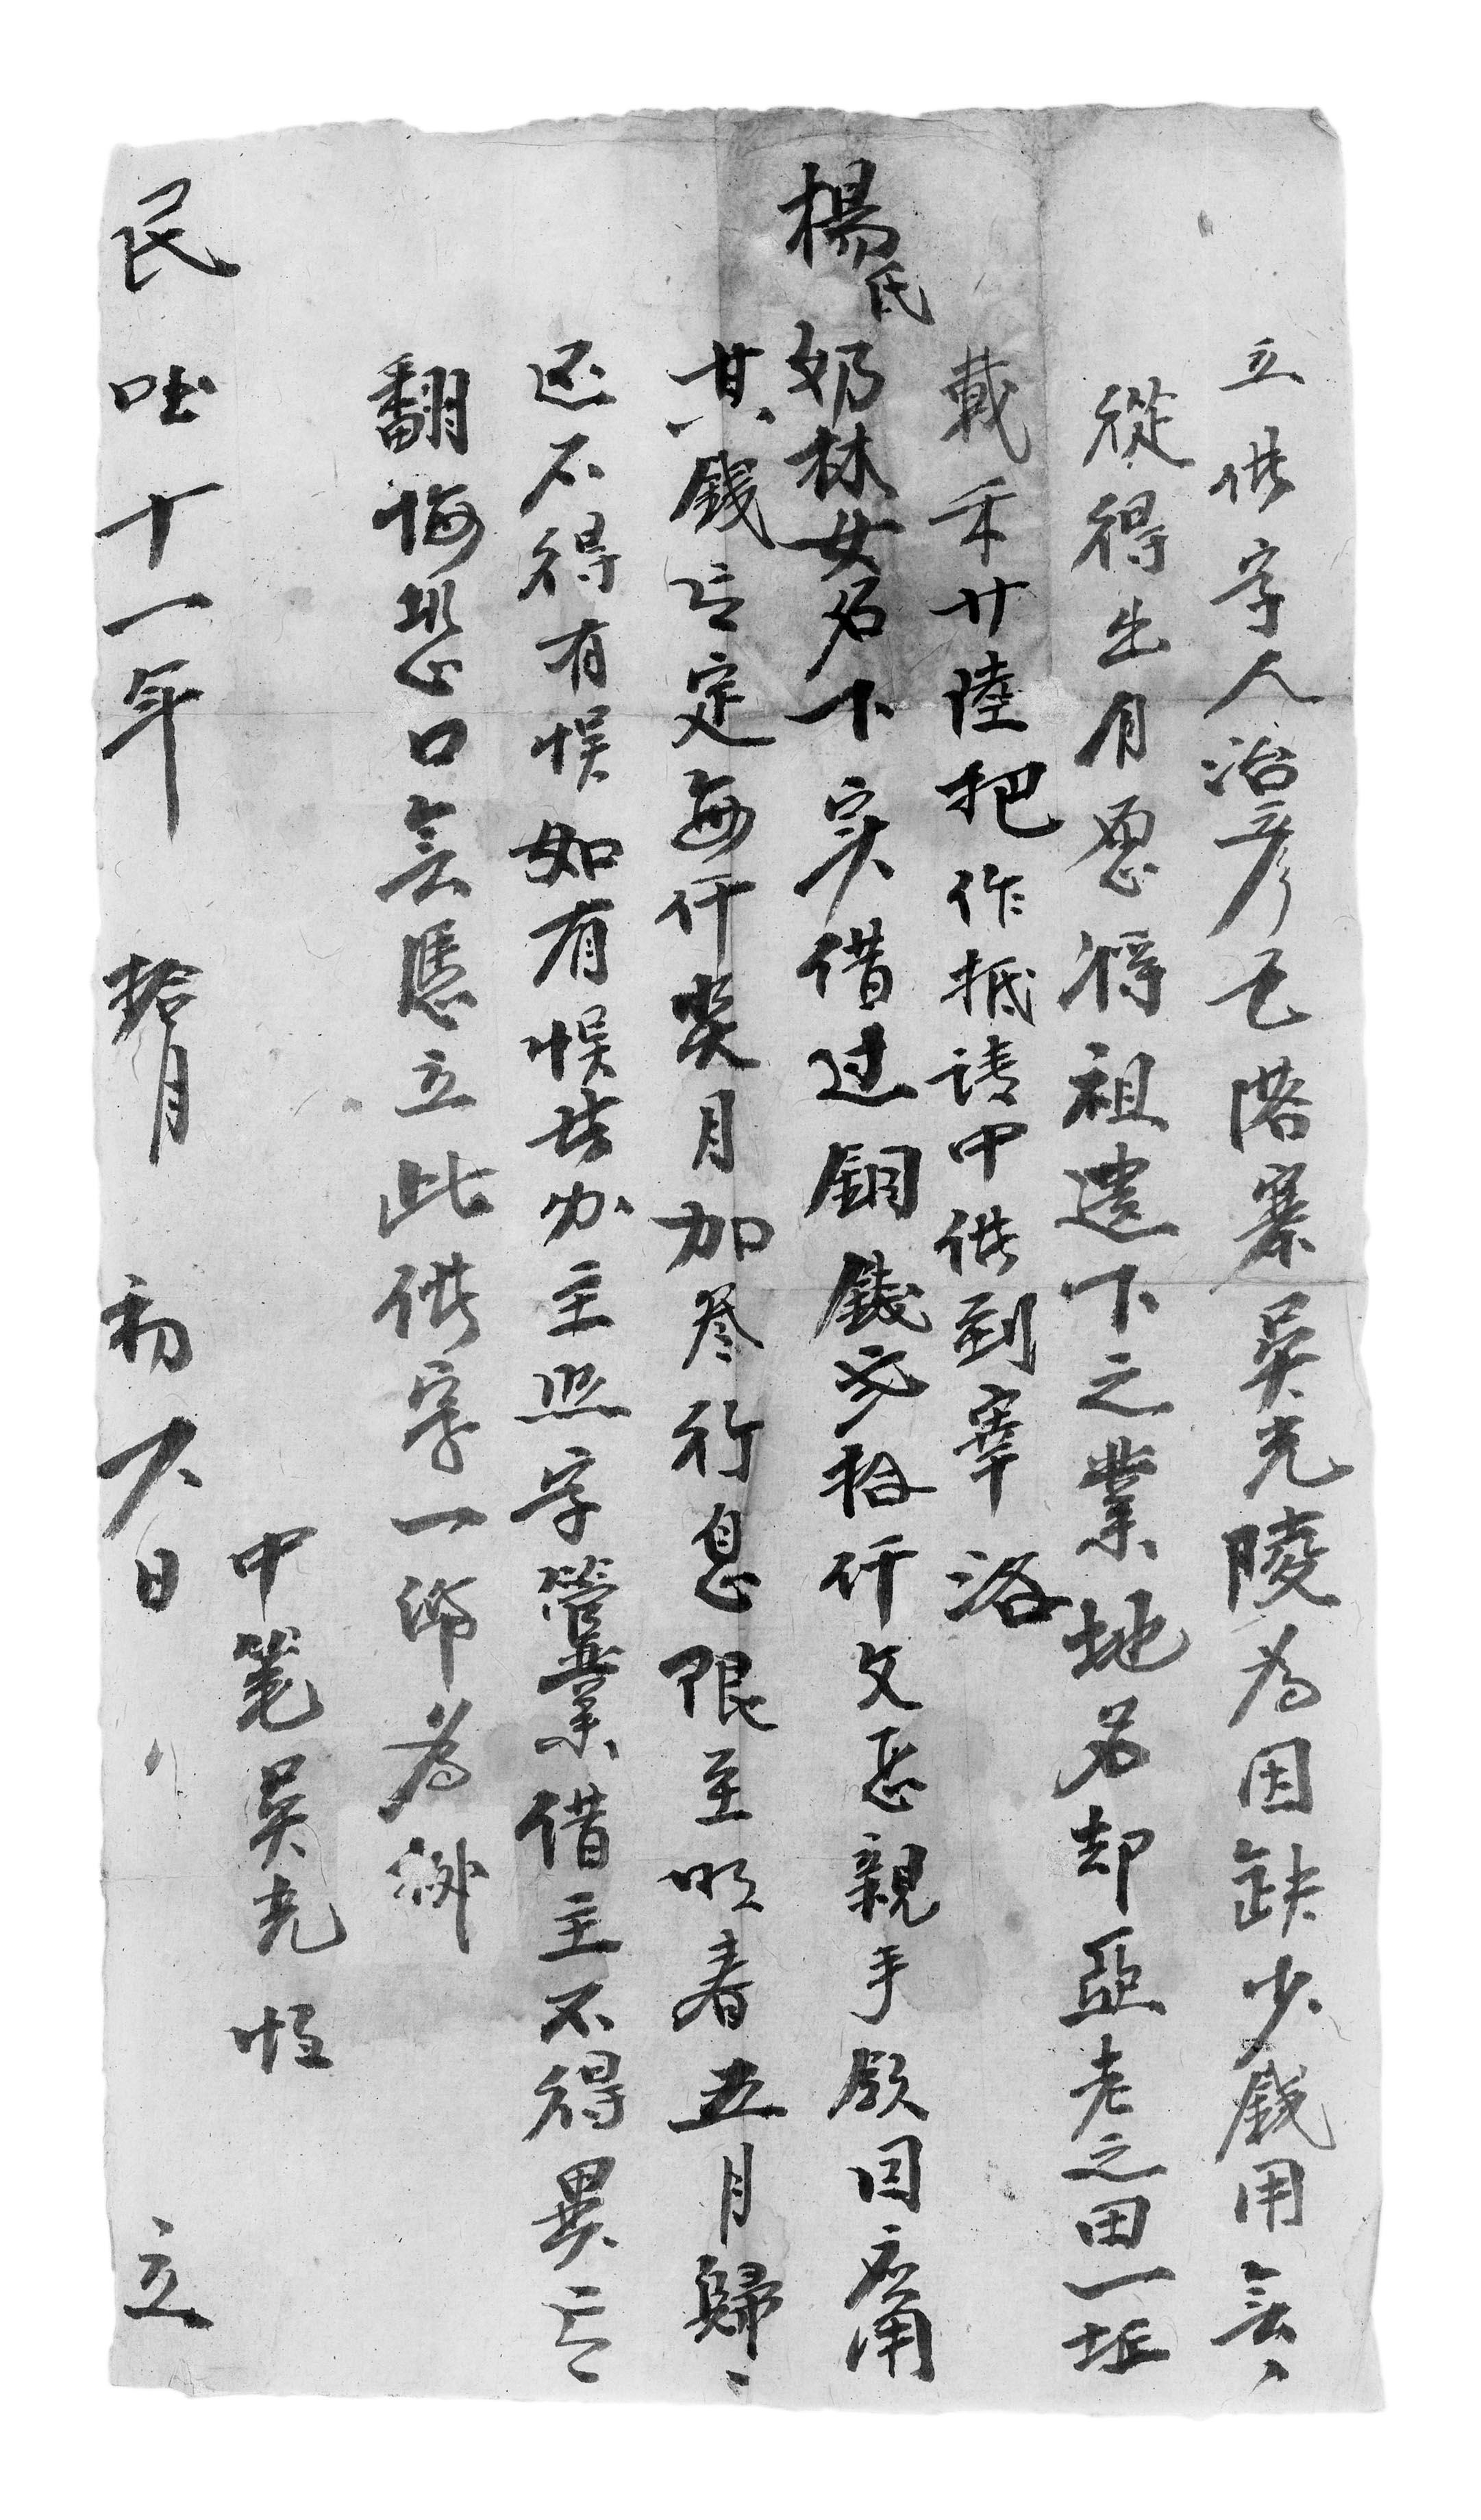 立供字人治彦屯落寨吴光陵為因缺少錢用無
從得出自愿將祖遺下之業地名却亞老之田一坵
載禾廿陸把作抵請中供到宰洛
楊氏奶林女名下实借过銅錢叁拾仟文恁親手領回應用
其錢言定每仟癸月加叁行息限至明春五月歸
还不得有悞如有悞其业主照字營業借主不得異言
翻悔恐口無憑立此供字一紙為據
中笔吴光恒
民囯十一年 拾月 初六日 立